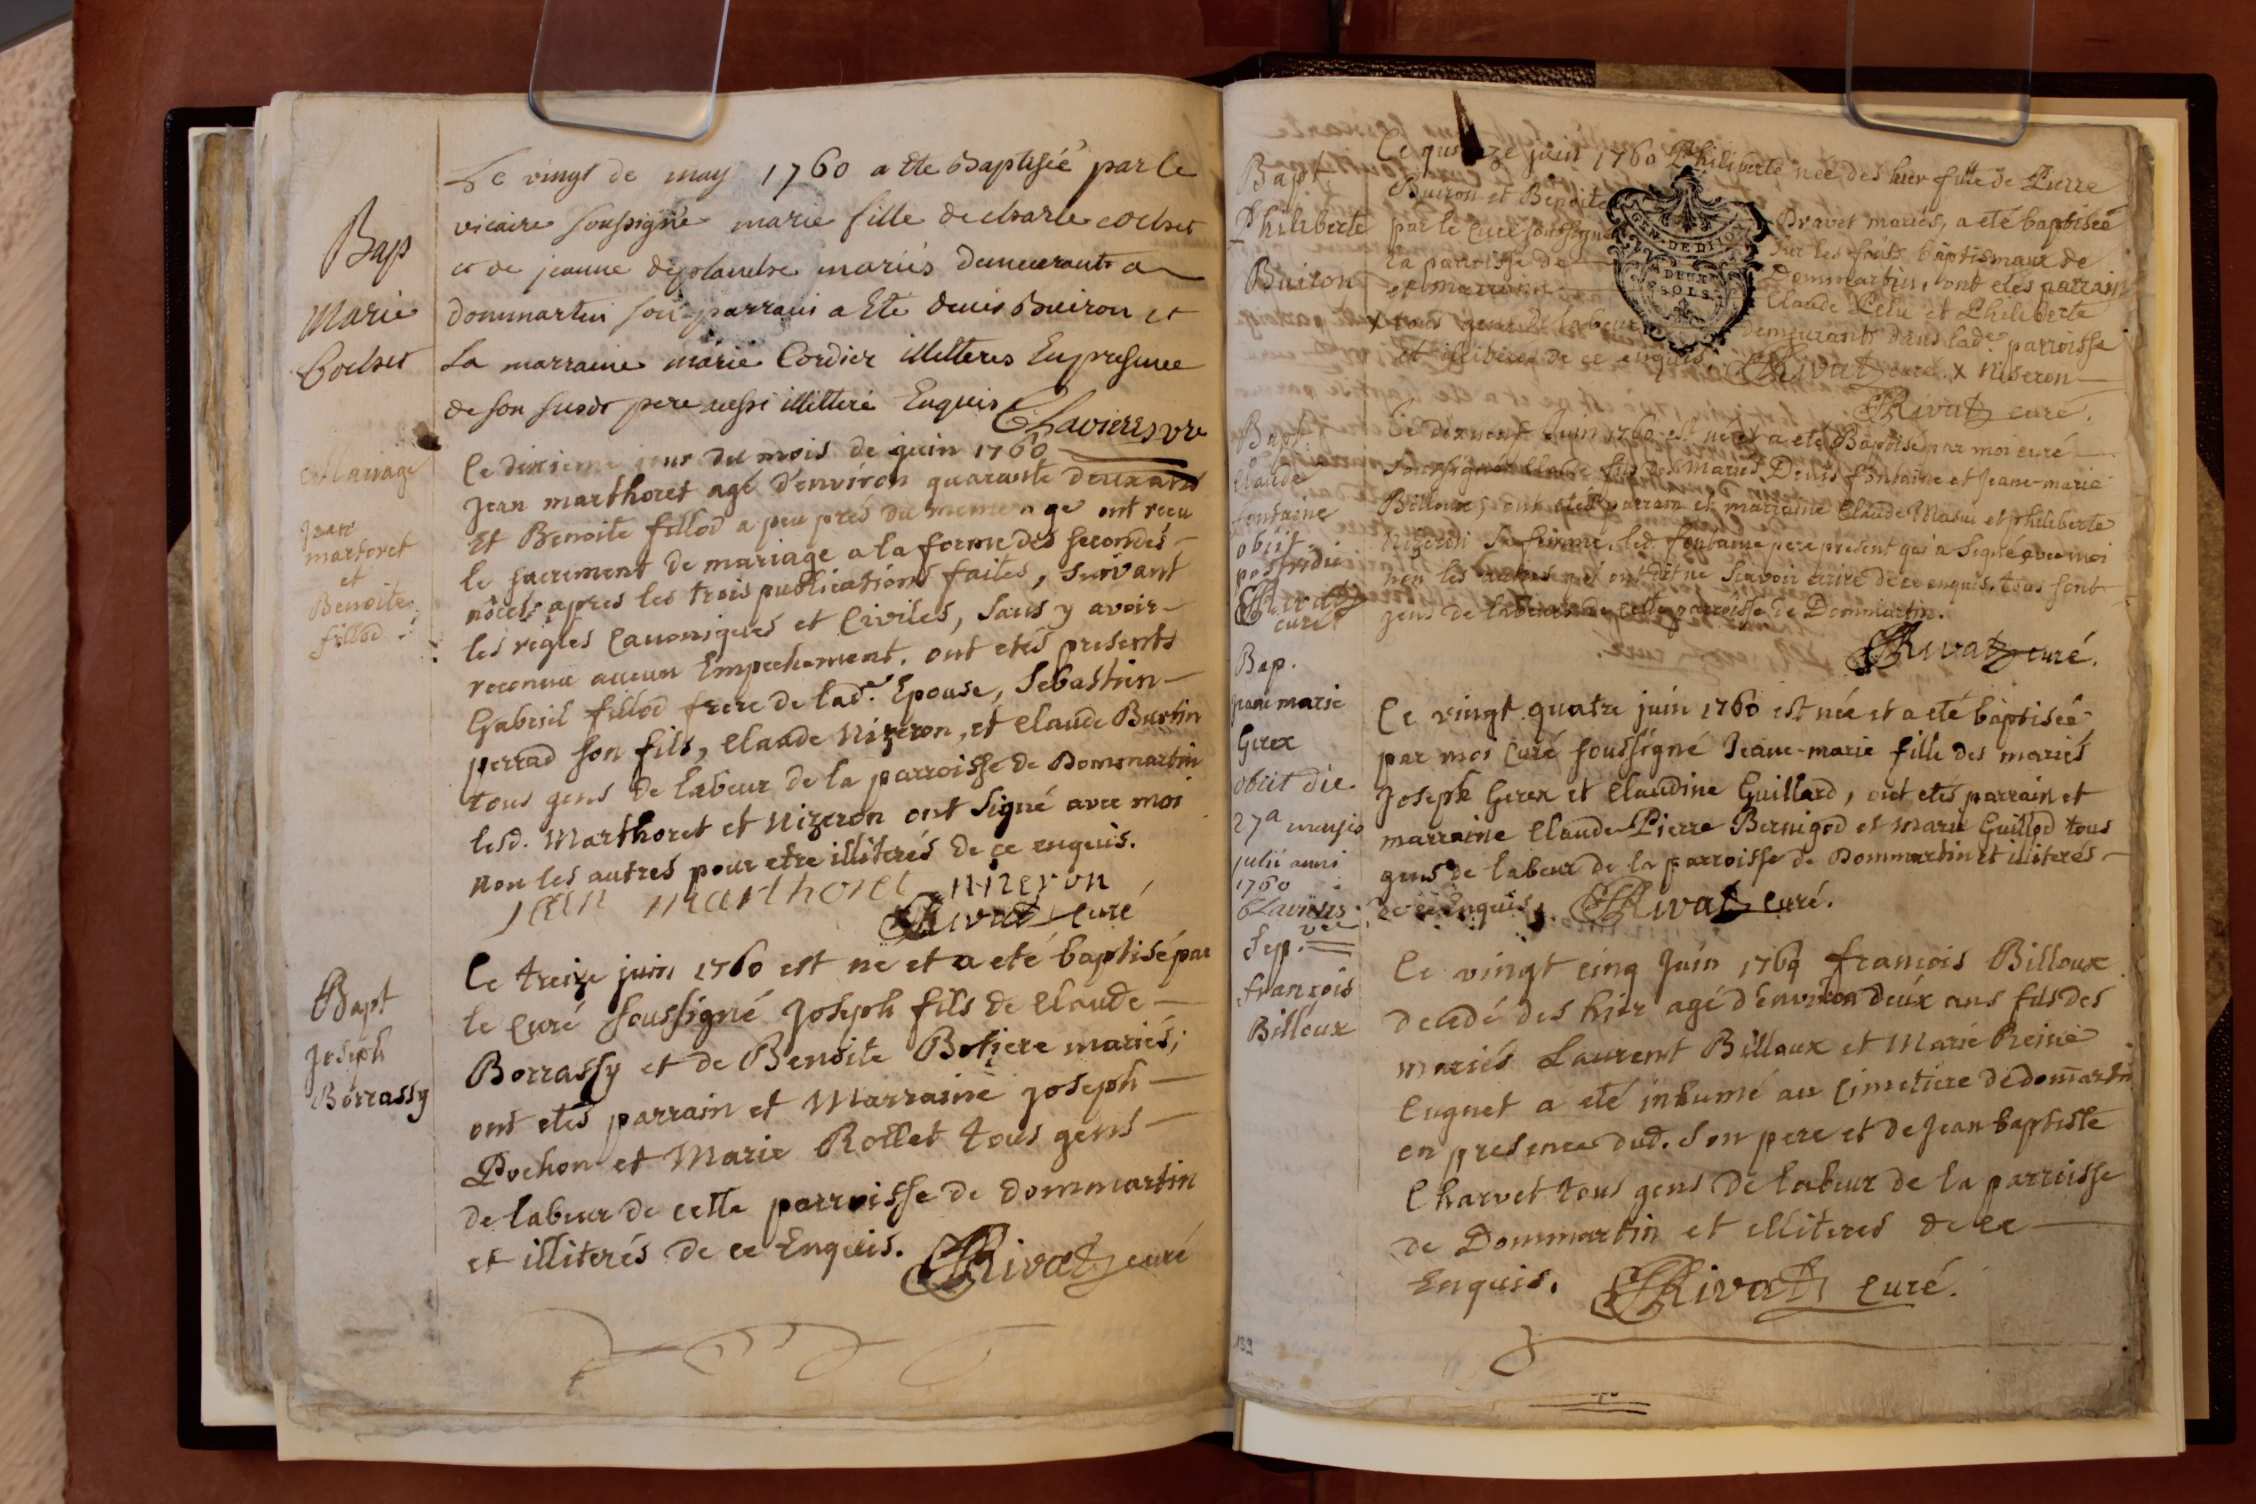 Bap
Marie
Cochet
Le vingt de may 1760 a Ete Baptisée par le
vicaire soussigné marie fille de charle cochet
et de jeanne deplanche mariés demeurants a
dommartin son parrain a Ete denis Buiron et
La marraine marie Cordier illetteres En presence
de son susdt pere aussi illetteré Enquis Chavieres vre
Mariage
Jean
martoret
et
Benoite
fillod
Le dixieme jour du mois de juin 1760
Jean marthoret agé d'environ quarante deux ans
Et Benoite fillod a peu prés du meme age ont receu
le sacrement de mariage a la forme des secondes
nôces; apres les trois publications faites, suivant
les regles Canoniques et Civiles, sans y avoir
reconnu aucun Empechement. ont etés presents
Gabriel fillod frere de lad.e Epouse, Sebastien
perrad son fils, Claude Nizeron, et Claude Burtin
tous gens de labeur de la parroisse de Dommartin
lesd. Marthoret et Nizeron ont signé avec moi
non les autres pour etre illiterés de ce enquis.
jean marthoret nizeron
Rivat curé
Bapt
Joseph
Borrassy
Ce treize juin 1760 est né et a eté baptisé par
le Curé soussigné Joseph fils de Claude
Borrassy et de Benoite Botiere mariés;
ont etés parrain et Marraine Joseph
Pochon et Marie Rollet tous gens
de labeur de cette parroisse de dommartin
et illiterés de ce Enquis. Rivat curé
Bapt
Philiberte
Buiron
Ce juin 1760 Philiberte née des hier fille de Pierre
Buiron et Benoite Pravet mariés, a eté baptisée
par le Curé soussigné sur les fonts baptismaux de
la parroisse de Dommartin, ont etés parrain
et marraine Claude Lelu et Philiberte
x tous gens de labeur demeurants dans lad.e parroisse
et illiteres de ce enquis. Rivat curé. x niseron
Rivat curé.
GEN. DE DIJON
DEUX
SOLS
Bapt.
Claude
fontaine
obiit
postridie
Rivat
curé
Ce dixneuf Juin 1760 est né et a eté Baptisé par moi curé
soussigné Claude fils des Mariés Denis fontaine et Jeanne-marie
Billoux; ont etés parrain et marraine Claude Masui et philiberte
Nizeron sa femme, led. fontaine pere present qui a signé avec moi
non les autres qui ont dit ne scavoir ecrire de ce enquis, tous sont
gens de labeur de cette parroisse de Dommartin.
Rivat curé.
Bap.
jeane marie
Gerex
obiit die
27a mensis
julii anni
1760
Chavieres
vre
Ce vingt quatre juin 1760 est née et a eté baptisée
par moi Curé soussigné Jeane-marie fille des mariés
Joseph Gerex et Claudine Guillard, ont etés parrain et
marraine Claude-Pierre Bernigod et Marie Guillod tous
gens de labeur de la parroisse de Dommartin et illiterés
de ce Enquis, Rivat curé.
Sep.
françois
Billoux
Ce vingt cinq Juin 1760 françois Billoux
decedé des hier agé d'environ deux ans fils des
mariés Laurent Billoux et Marie Reine
Cugnet a eté inhumé au Cimetiere de domartin
en presence dud. son pere et de Jean baptiste
Charvet tous gens de labeur de la parroisse
de Dommartin et illiteres de ce
Enquis. Rivat curé.